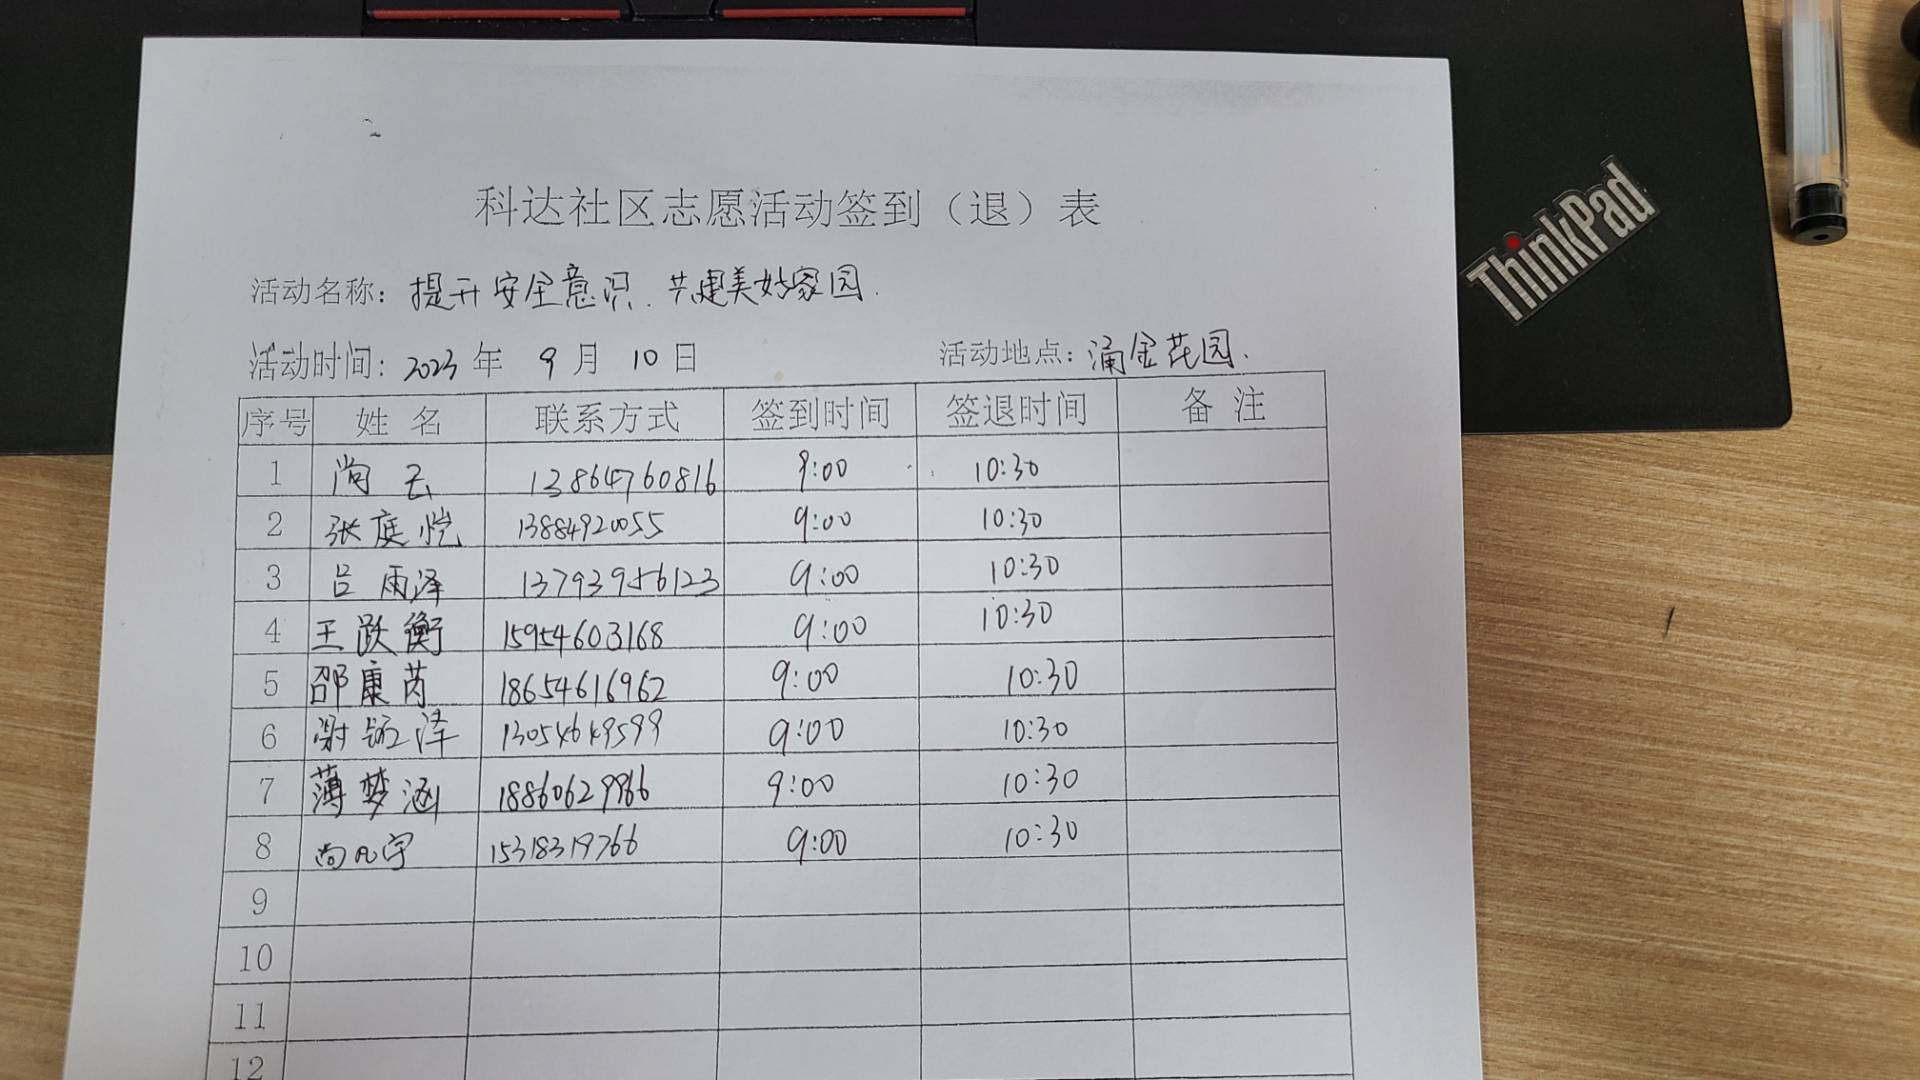 科达社区志愿活动签到（退）表
活动名称：提升安全意识、共建美好家园.
活动时间：2023 年 9 月 10 日 活动地点：涌金花园.
ThinkPad
序号 姓 名 联系方式 签到时间 签退时间 备 注
1 尚云 13864760816 9:00 10:30
2 张庭恺 13884920055 9:00 10:30
3 吕雨泽 13793956123 9:00 10:30
4 王跃衡 15954603168 9:00 10:30
5 邵康芮 18654616962 9:00 10:30
6 谢 泽 9:00 10:30
7 薄梦涵 18860629966 9:00 10:30
8 尚凡宇 15318319766 9:00 10:30
9
10
11
12